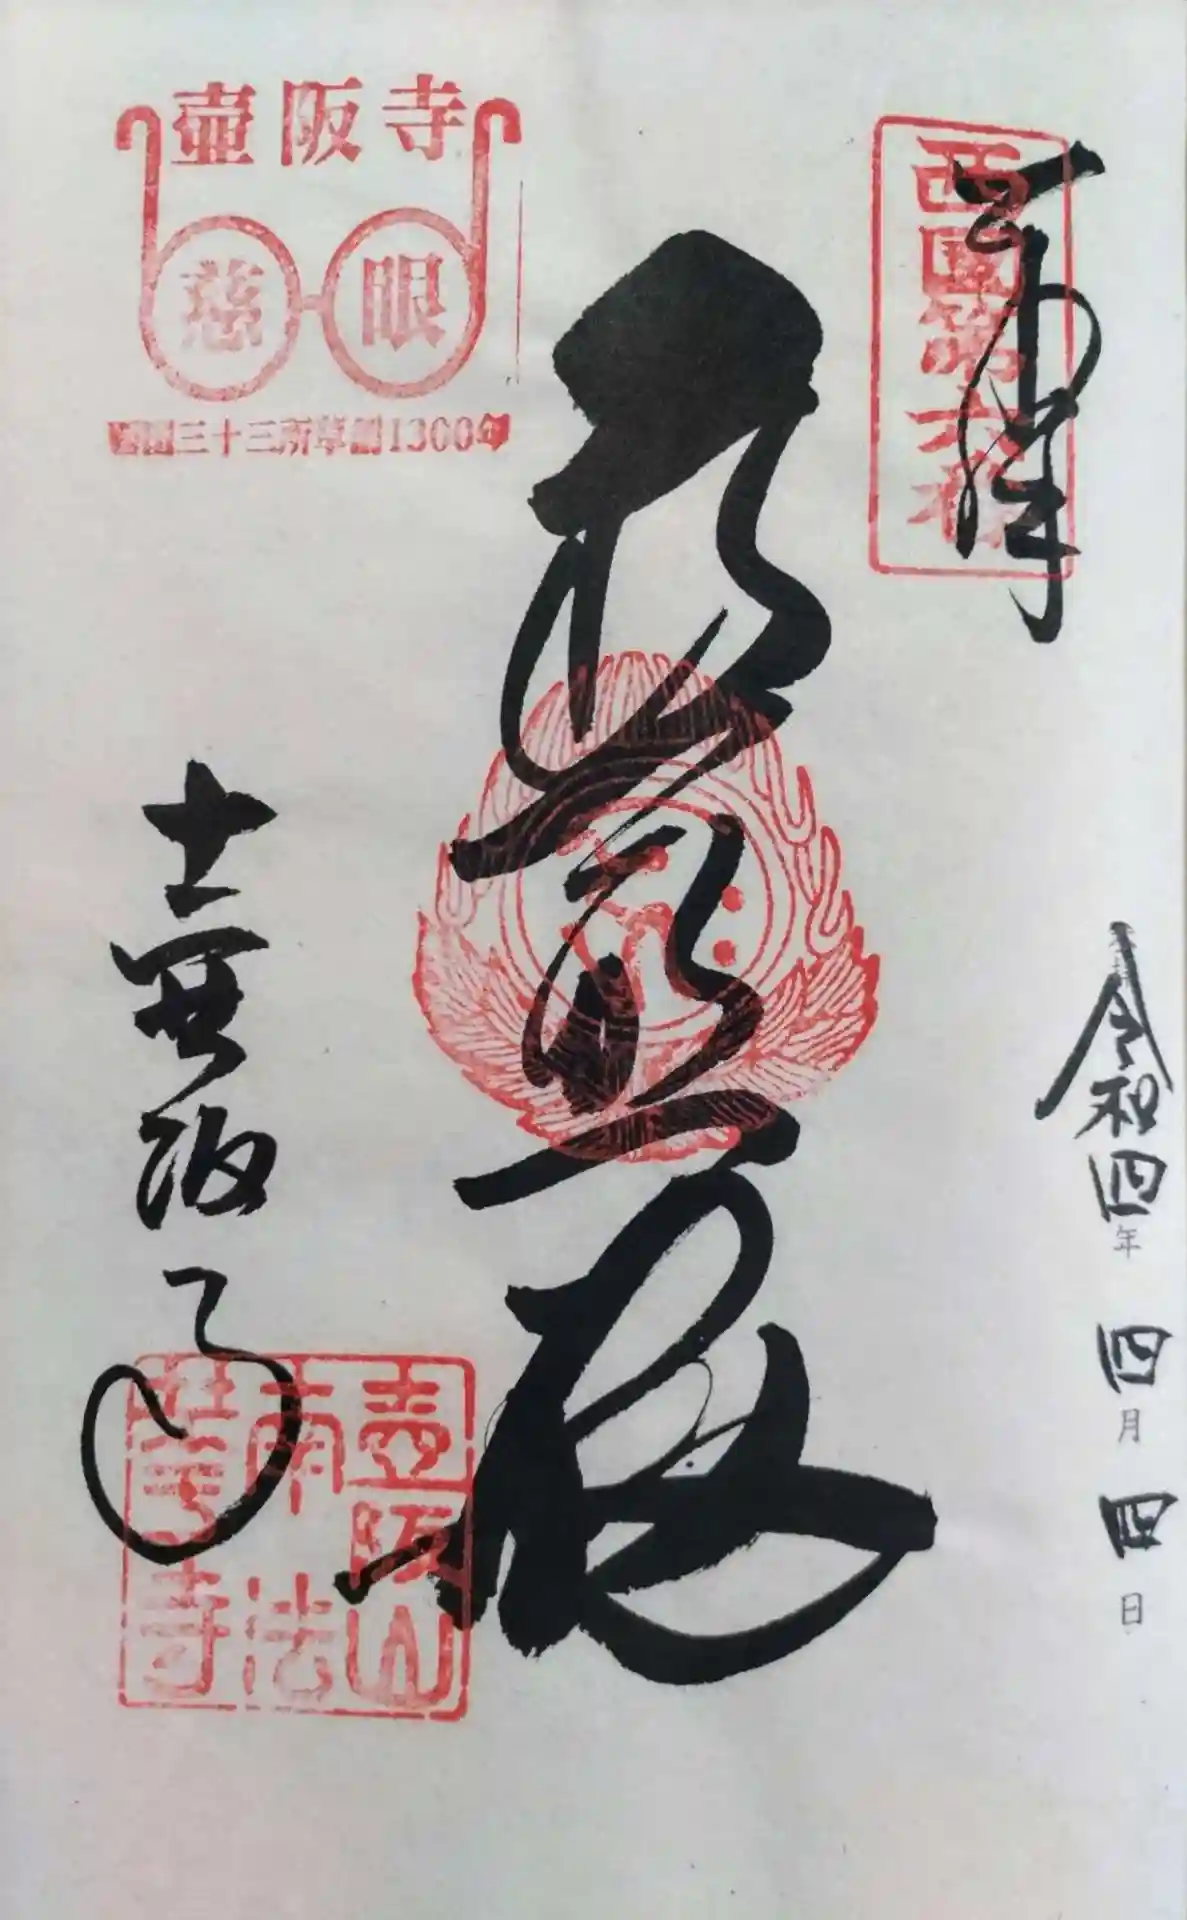 奉拝
西國第六番
令和四年 四月 四日
普照殿
壺阪寺
慈眼
西国三十三所草創1300年
壺阪寺
壺阪山
南法
華寺